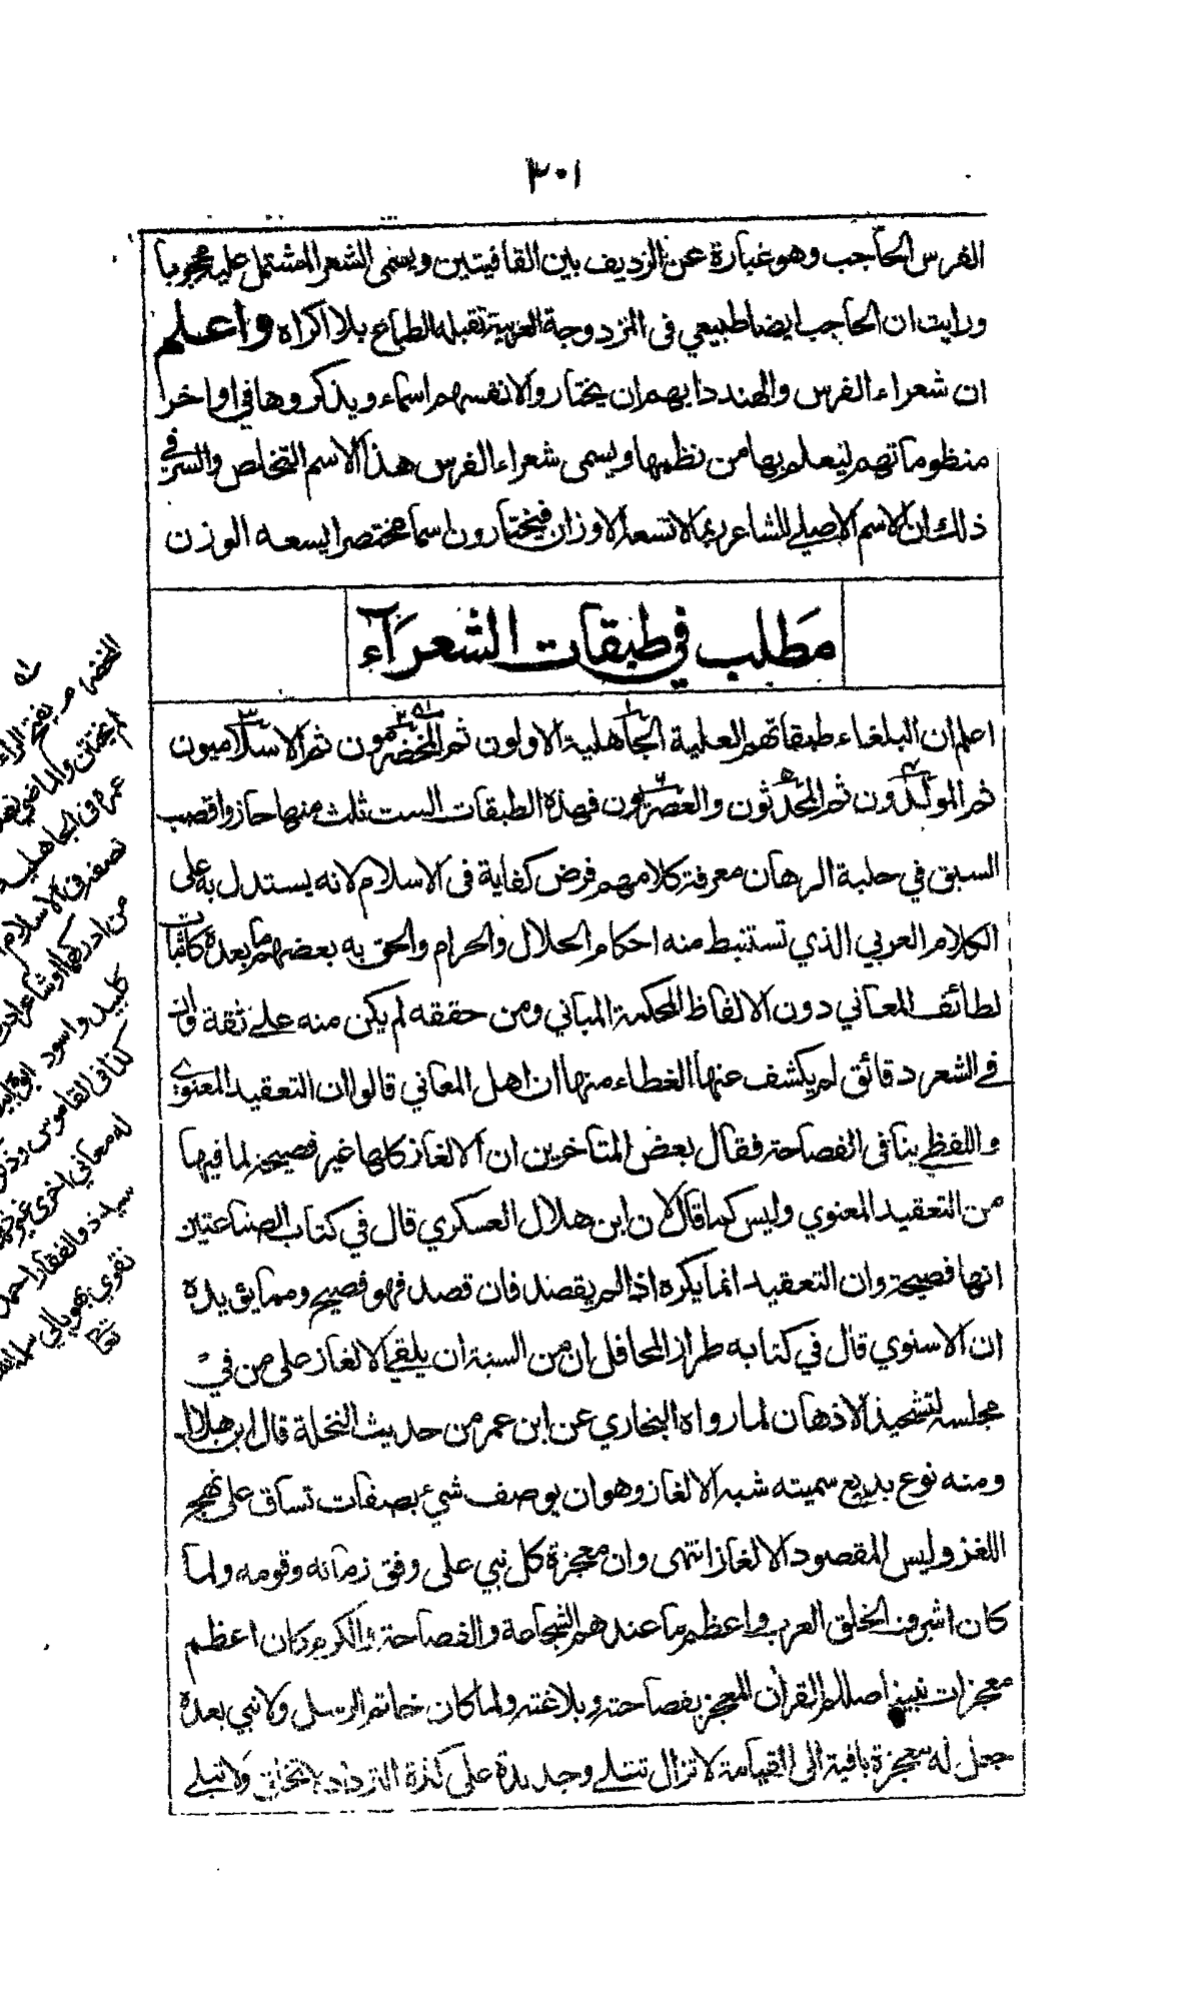 ٣٠١
الفرس الحاجب وهو عبارة عن الرديف بين القافيتين ويسمى الشعر المشتمل عليه محجوبا
ورايت ان الحاجب ايضا طبيعي فى المزدوجة العربية تقبله الطباع بلا اكراه واعلم
ان شعراء الفرس والهند دابهم ان يختاروا لانفسهم اسماء ويذكروها في اواخر
منظوماتهم ليعلم بها من نظمها ويسمى شعراء الفرس هذا الاسم التخلص والسر في
ذلك ان الاسم الاصلي للشاعر ربما لا تسعه الاوزان فيختارون اسما مختصرا يسعه الوزن
مطلب في طبقات الشعراء
اعلم ان البلغاء طبقاتهم العلية الجاهلية الاولون ثم المخضرمون ثم الاسلاميون
ثم المولدون ثم المحدثون والعصريون فهذه الطبقات الست ثلث منها حازوا قصب
السبق في حلبة الرهان معرفة كلامهم فرض كفاية فى الاسلام لانه يستدل به على
الكلام العربي الذي تستنبط منه احكام الحلال والحرام والحق به بعضهم ما بعده كاثبات
لطائف المعاني دون الالفاظ المحكمة المباني ومن حققه لم يكن منه على ثقة وان
في الشعر دقائق لم يكشف عنها الغطاء منها ان اهل المعاني قالوا ان التعقيد المعنوي
واللفظي ينافى الفصاحة فقال بعض المتاخرين ان الالغاز كلها غير فصيحة لما فيها
من التعقيد المعنوي وليس كما قال لان ابن هلال العسكري قال في كتاب الصناعتين
انها فصيحة وان التعقيد انما يكره اذا لم يقصد فان قصد فهو فصيح ومما يؤيده
ان الاسنوي قال في كتابه طراز المحافل ان من السنة ان يلقي الالغاز على من في
مجلسه لتشحيذ الاذهان لما رواه البخاري عن ابن عمر من حديث النخلة قال ابن هلال
ومنه نوع بديع سميته شبه الالغاز وهو ان يوصف شيء بصفات تساق على نهج
اللغز وليس المقصود الالغاز انتهى وان معجزة كل نبي على وفق زمانه وقومه ولما
كان اشرف الخلق العرب واعظم ما عندهم الشجاعة والفصاحة والكرم كان اعظم
معجزات نبينا صللم القرآن المعجز بفصاحته وبلاغته ولما كان خاتم الرسل ولا نبي بعده
جعل له معجزة باقية الى القيامة لا تزال تتلى وجديدة على كثرة الترداد لا تخلق ولا تبلى
بفتح الراء
عمره فى الجاهلية
من ادركهما او شاعر
واسود
كذا فى القاموس
له معاني اخرى
سيد ذو الفقار احمد
نقوي بهوپالي